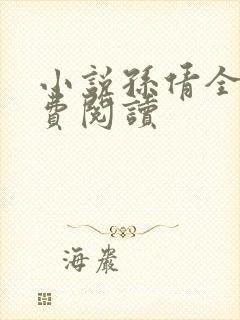 小说孫倩全
費閱讀
海巖